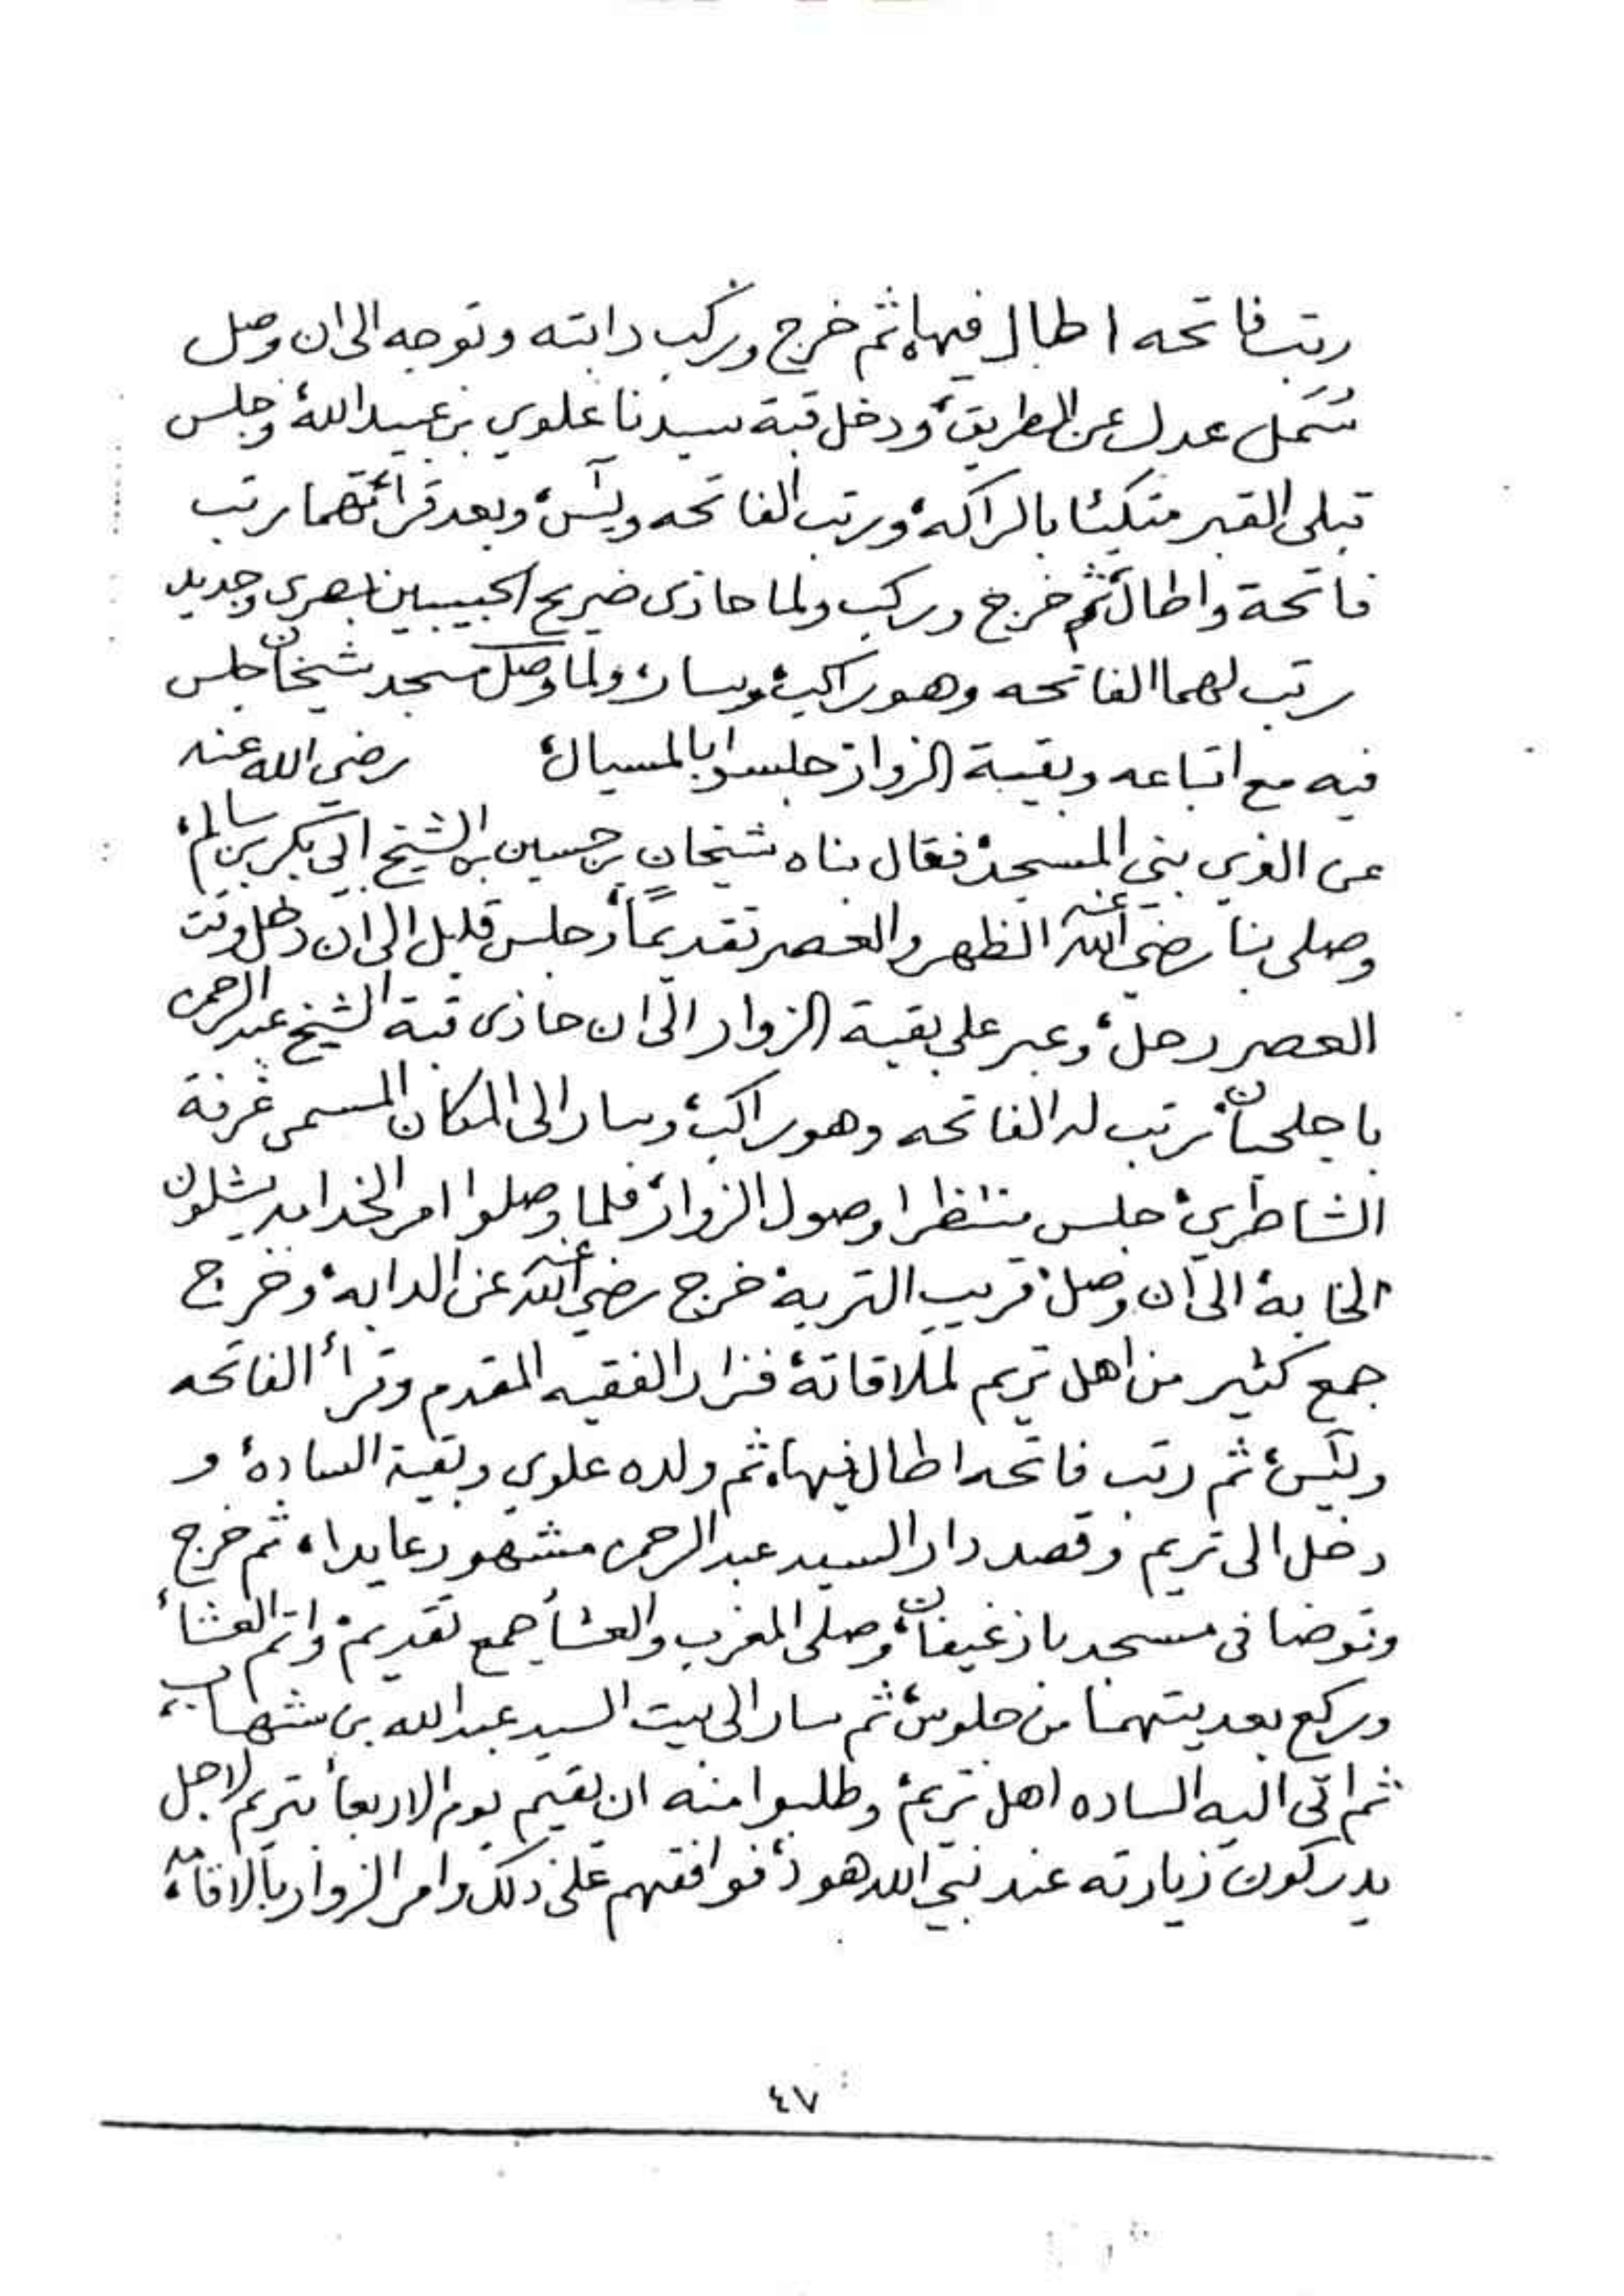 رتب فاتحه اطال فيها، ثم خرج وركب دابته وتوجه الى ان وصل
سُمَل عدل عن الطريق، ودخل قبة سيدنا علوي بن عبيدالله، وجلس
قبلي القبر متكئا بالراكه، ورتب الفاتحه ويٓس، وبعد قرائتهما رتب
فاتحة واطال، ثم خرج وركب ولما حاذى ضريح الحبيبين بصري وجديد
رتب لهما الفاتحه وهو راكب، وسار، ولما وصل مسجد شيخان جلس
فيه مع اتباعه وبقية الزوار جلسوا بالمسيال، رضي الله عنه
عن الذي بنى المسجد، فقال بناه شيخان بن حسين بن الشيخ ابي بكر بن سالم،
وصلى بنا رضي الله عنه الظهر والعصر تقديمًا، وجلس قليل الى ان دخل وقت
العصر رحل، وعبر على بقية الزوار الى ان حاذى قبة الشيخ عبدالرحمن
با جلحبان، رتب له الفاتحه وهو راكب، وسار الى المكان المسمى غرفة
الشاطري، جلس منتظرا وصول الزوار، فلما وصلوا امر الخدامه يشلون
الخابة، الى ان وصل، قريب التربة، خرج رضي الله عنه عن الدابه، وخرج
جمع كثير من اهل تريم لملاقاتة، فزار الفقيه المقدم وقرأ الفاتحه
ويٓس، ثم رتب فاتحه اطال فيها، ثم ولده علوي وبقية الساده، و
دخل الى تريم وقصد دار السيد عبدالرحمن مشهور عايدا، ثم خرج
وتوضا في مسجد باز غيفان، وصلى المغرب والعشأ جمع تقديم، واتم العشأ،
وركع بعديتهما من جلوس، ثم سار الى بيت السيد عبدالله بن شهاب،
ثم اتى اليه الساده اهل تريم، وطلبوا منه ان يقيم يوم الاربعأ بتريم لاجل
يدركون زيارته عند نبي الله هود، فوافقهم على ذلك وامر الزوار بالاقامه،
٤٧